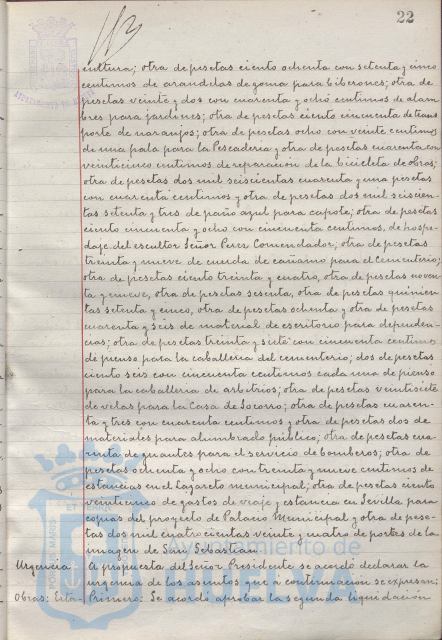 22
cultura; otra de pesetas ciento ochenta con setenta y cinco
centimos de arandelas de goma para biberones; otra de
pesetas veinte y dos con cuarenta y ocho centimos de alam
bres para jardines; otra de pesetas ciento cincuenta de trans
porte de naranjos; otra de pesetas ocho con veinte centimos
de una pala para la Pescaderia y otra de pesetas cuarenta con
veinticinco centimos de reparación de la bicicleta de obras;
otra de pesetas dos mil seiscientas cuarenta y una pesetas
con cuarenta centimos y otra de pesetas dos mil seiscien-
tas setenta y tres de paño azul para capote; otra de pesetas
ciento cincuenta y ocho con cincuenta centimos, de hospe-
daje del escultor Señor Perez Comendador, otra de pesetas
treinta y nueve de cuerda de cañamo para el Cementerio;
otra de pesetas ciento treinta y cuatro, otra de pesetas noven
ta y nueve, otra de pesetas sesenta, otra de pesetas quinien
tas setenta y cinco, otra de pesetas ochenta y otra de pesetas
cuarenta y seis de material de escritorio para dependen-
cias; otra de pesetas treinta y siete con cincuenta centimos
de pienso para la caballeria del cementerio; dos de pesetas
ciento seis con cincuenta centimos cada una de pienso
para la caballeria de arbitrios; otra de pesetas veintisiete
de velas para la Casa de Socorro; otra de pesetas cuaren-
ta y tres con cuarenta centimos y otra de pesetas dos de
materiales para alumbrado público; otra de pesetas cua
renta de guantes para el servicio de bomberos; otra de
pesetas ochenta y ocho con treinta y nueve centimos de
estancias en el Lazareto municipal; otra de pesetas ciento
veinticinco de gastos de viaje y estancia en Sevilla para
copias del proyecto de Palacio Municipal y otra de pese-
tas dos mil cuatrocientas veinte y cuatro de portes de la
imagen de San Sebastian
Urgencia A propuesta del Señor Presidente se acordó declarar la
urgencia de los asuntos que a continuación se expresan:
Obras: Esta- Primero: Se acordó aprobar la segunda liquidación
Ayuntamiento de